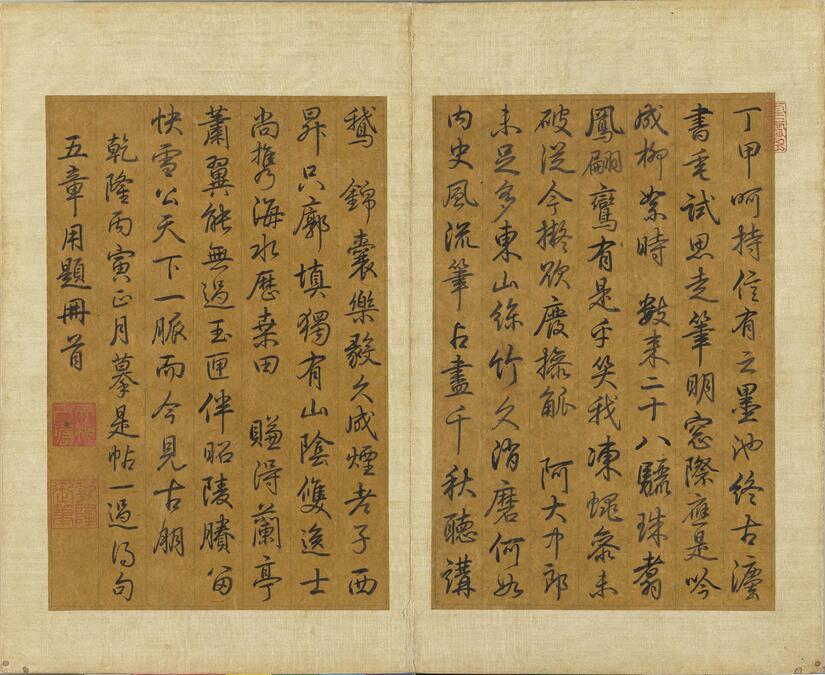 丁甲呵持信有之墨池終古灋
書垂試思走筆明窓際應是吟
成柳絮時 數来二十八驪珠翥
鳳翩鸞有是乎笑我凍蠅參未
破從今擬欲廢操觚 阿大中郎
未足多東山絲竹久消磨何如
内史風流筆占盡千秋聽講
鵝 錦囊樂毅久成煙老子西
昇只廓填獨有山陰雙逸士
尚攜海水歷桑田 賺得蘭亭
蕭翼能無過玉匣伴昭陵賸留
快雪公天下一脈而今見古朋
乾隆丙寅正月摹是帖一過得句
五章用題冊首